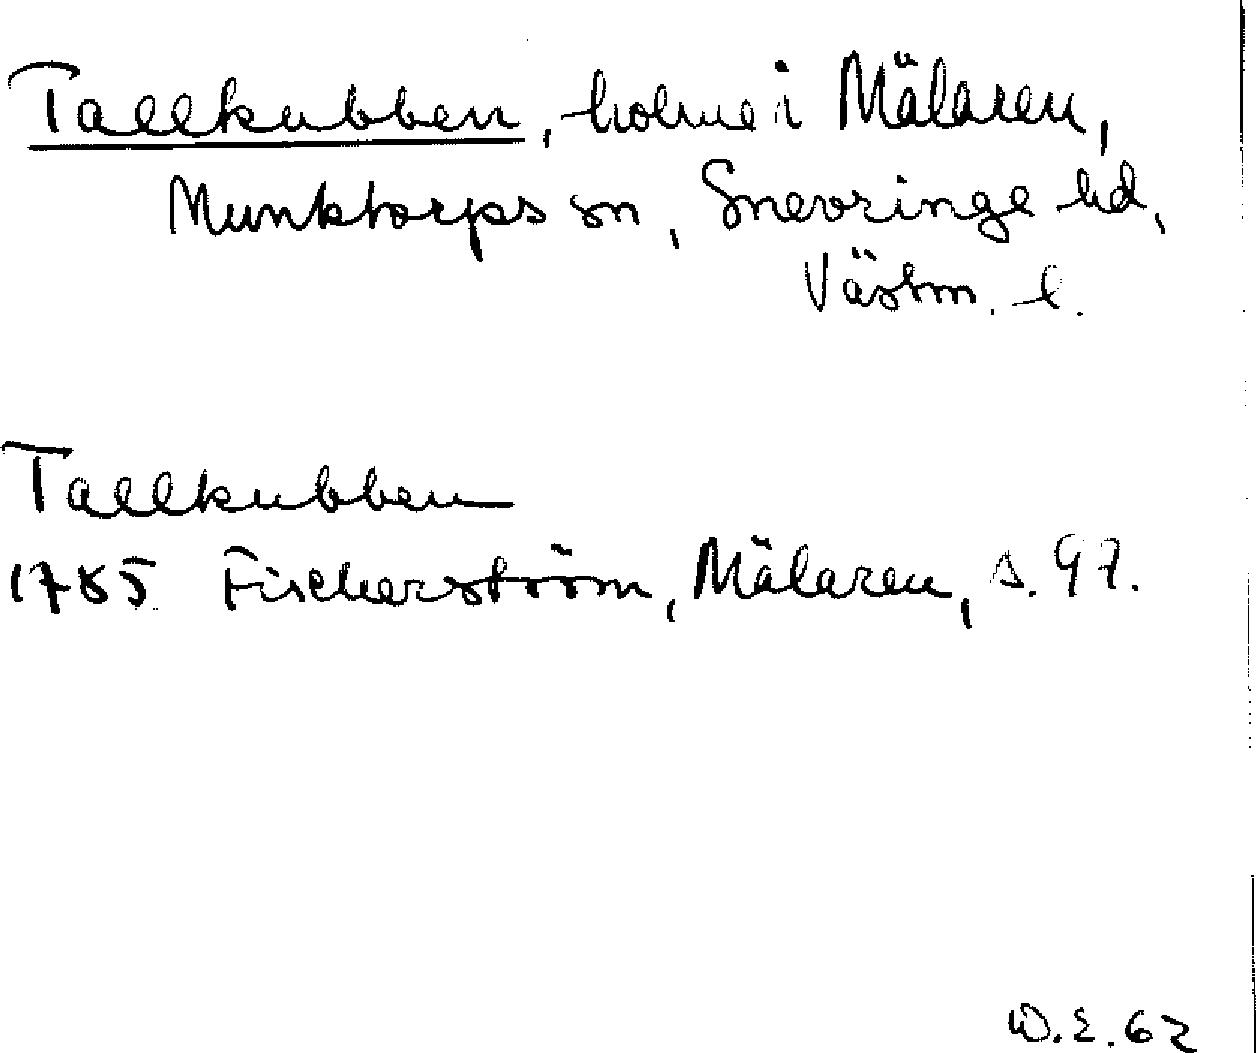 Tallkubben, holme i Mälaren,
Munktorps sn, Snevringe hd,
Västm. l.
Tallkubben
1785 Fischerström, Mälaren, s. 97.
W.E.62